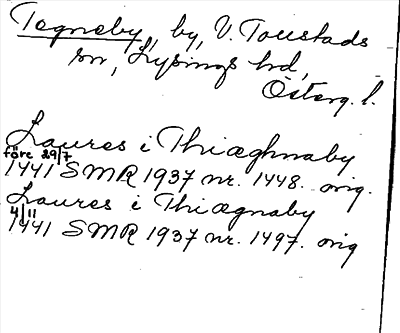 Tegneby, by, V. Tollstads
sn, Lysings hd,
Österg. l.
Laures i Thiæghnaby
före 29/7
1441 SMR 1937 nr. 1448. orig.
Laures i Thiægnaby
4/11
1441 SMR 1937 nr. 1497. orig